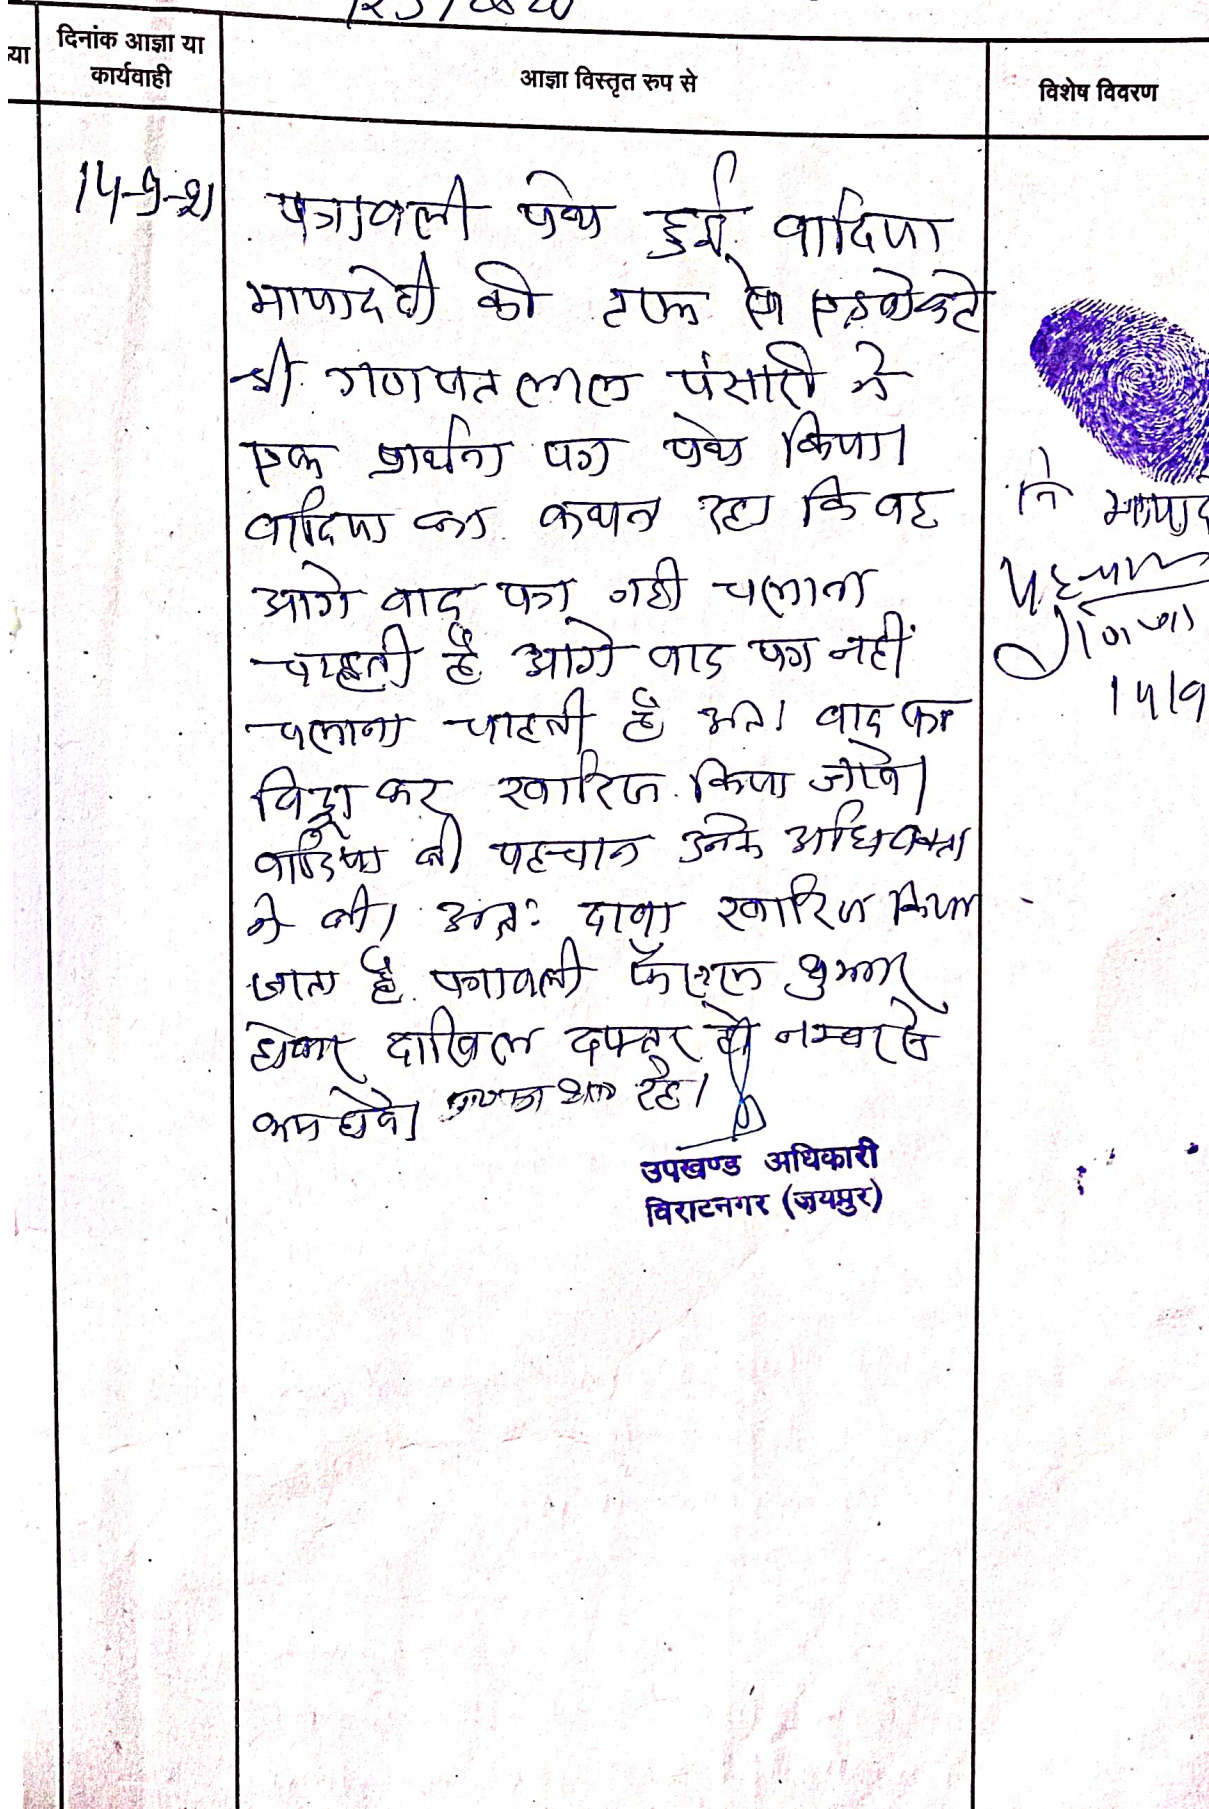 या
दिनांक आज्ञा या
कार्यवाही
आज्ञा विस्तृत रुप से
विशेष विवरण
14-9-21
पत्रावली पेश हुई वादिया
मायादेवी की तरफ से एडवोकेट
श्री गणपत लाल पंसारी ने
एक प्रार्थना पत्र पेश किया।
वादिया का कथन रहा कि वह
आगे वाद पत्र नही चलाना
चाहती है आगे वाद पत्र नहीं
चलाना चाहती है अतः वाद पत्र
विड्रा कर खारिज किया जावे।
वादिया की पहचान उनके अधिवक्ता
ने की। अतः दावा खारिज किया
जाता है पत्रावली फैसल शुमार
होकर दाखिल दफ्तर हो नम्बर से
कम होवे। रहे।
उपखण्ड अधिकारी
विराटनगर (जयपुर)
नि